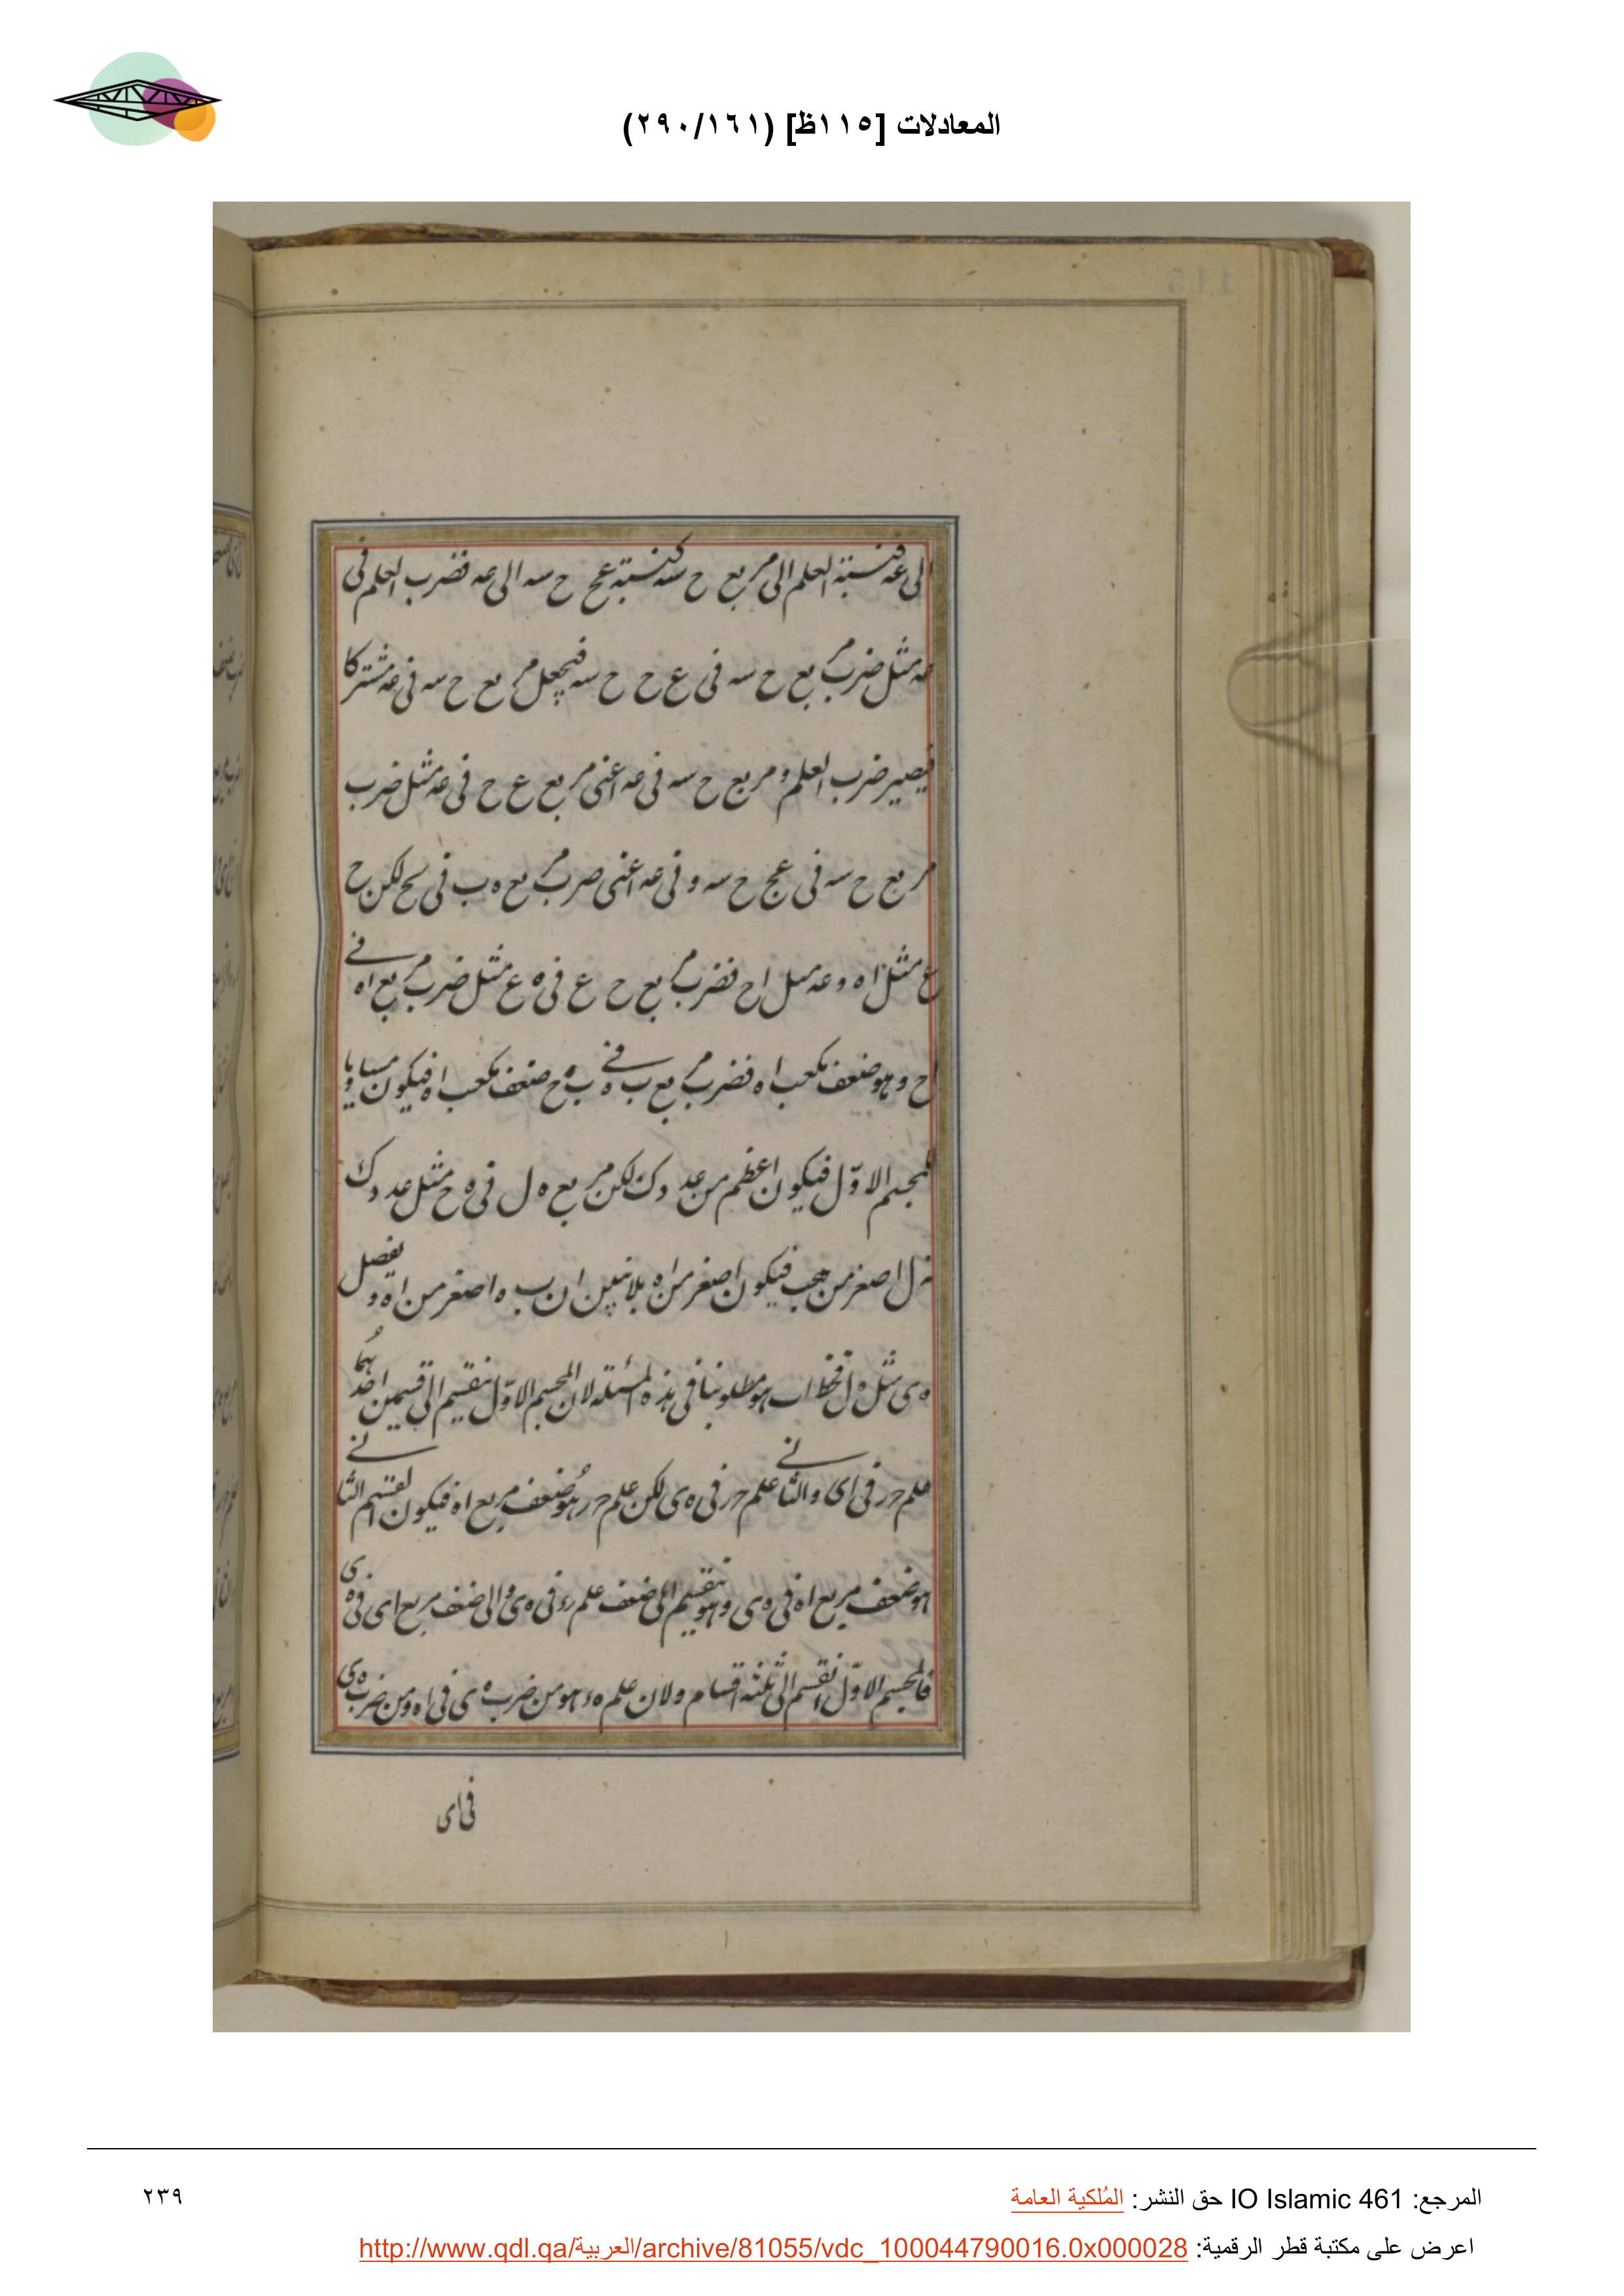 المعادلات [١١٥ظ] (٢٩٠/١٦١)
الى عه فنسبة العلم الى مربع ح سه كنسبة عح ح سه الى عه فضرب العلم فى
عه مثل ضرب مربع ح سه فى ع ح ح سه فيجعل مربع ح سه فى عه مشتركا
فيصير ضرب العلم و مربع ح سه فى عه اعنى مربع ع ح فى عه مثل ضرب
مربع ح سه فى عح ح سه و فى عه اعنى ضرب مربع ه ب فى لكن ح
ع مثل اه و عه مثل اح فضرب مربع ح ع فى ه ع مثل ضرب مربع اه فى
اح و هو ضعف مكعب اه فضرب مربع ب ه فى ب ح ضعف مكعب اه فيكون مساويا
للمجسم الاوّل فيكون اعظم من عدد ك لكن مربع ه ل فى ه ح مثل عدد ك
ه ل اصغر من فيكون اصغر من اه بلا ان ب ه اصغر من اه و يفصل
ه ى مثل ه ل فخط اب هو مطلوبنا فى هذه المسئلة لان المجسم الاوّل ينقسم الى قسمين احدهما
علم حر فى اى والثانى علم حر فى ه ى لكن علم حر هو ضعف مربع اه فيكون القسم الثانى
هو ضعف مربع اه فى ه ى وهو ينقسم الى ضعف علم ء فى ه ى و الى ضعف مربع اى فى ه ى
فالمجسم الاوّل انقسم الى ثلثة اقسام و لان علم ه ء هو من ضرب ه ى فى اه و من ضرب ه ى
فى اى
المرجع: IO Islamic 461 حق النشر: المُلكية العامة
٢٣٩
اعرض على مكتبة قطر الرقمية: http://www.qdl.qa/العربية/archive/81055/vdc_100044790016.0x000028